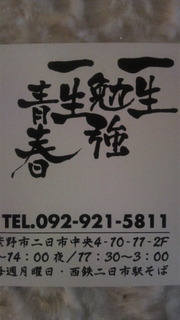 一生
勉強
一生
青春
TEL.092-921-5811
野市二日市中央4-10-11-2F
~14:00 夜/17:30~3:00
毎週月曜日・西鉄二日市駅そば